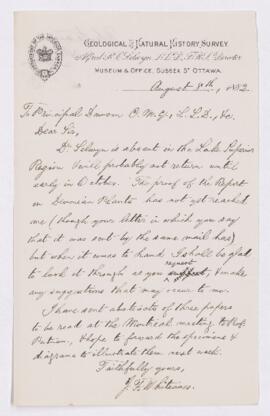 GEOLOGICAL & NATURAL HISTORY SURVEY
Alfred R. C. Selwyn LL.D., F.R.S., Director
MUSEUM & OFFICE, SUSSEX ST OTTAWA.
August 8th, 1882
To Principal Dawson C.M.G., L.L.D., &c.
Dear Sir,
Dr. Selwyn is absent in the Lake Superior
Region & will probably not return until
early in October. The proof of the Report
on Devonian Plants has not yet reached
me (though your letter in which you say
that it was sent by the same mail has)
but when it comes to hand I shall be glad
request
to look it through as you suggest, & make
any suggestions that may occur to me.
I have sent abstracts of three papers
to be read at the Montreal meeting to Prof.
Putnam, & hope to forward the specimens &
diagrams to illustrate them next week.
Faithfully yours,
J. F. Whiteaves